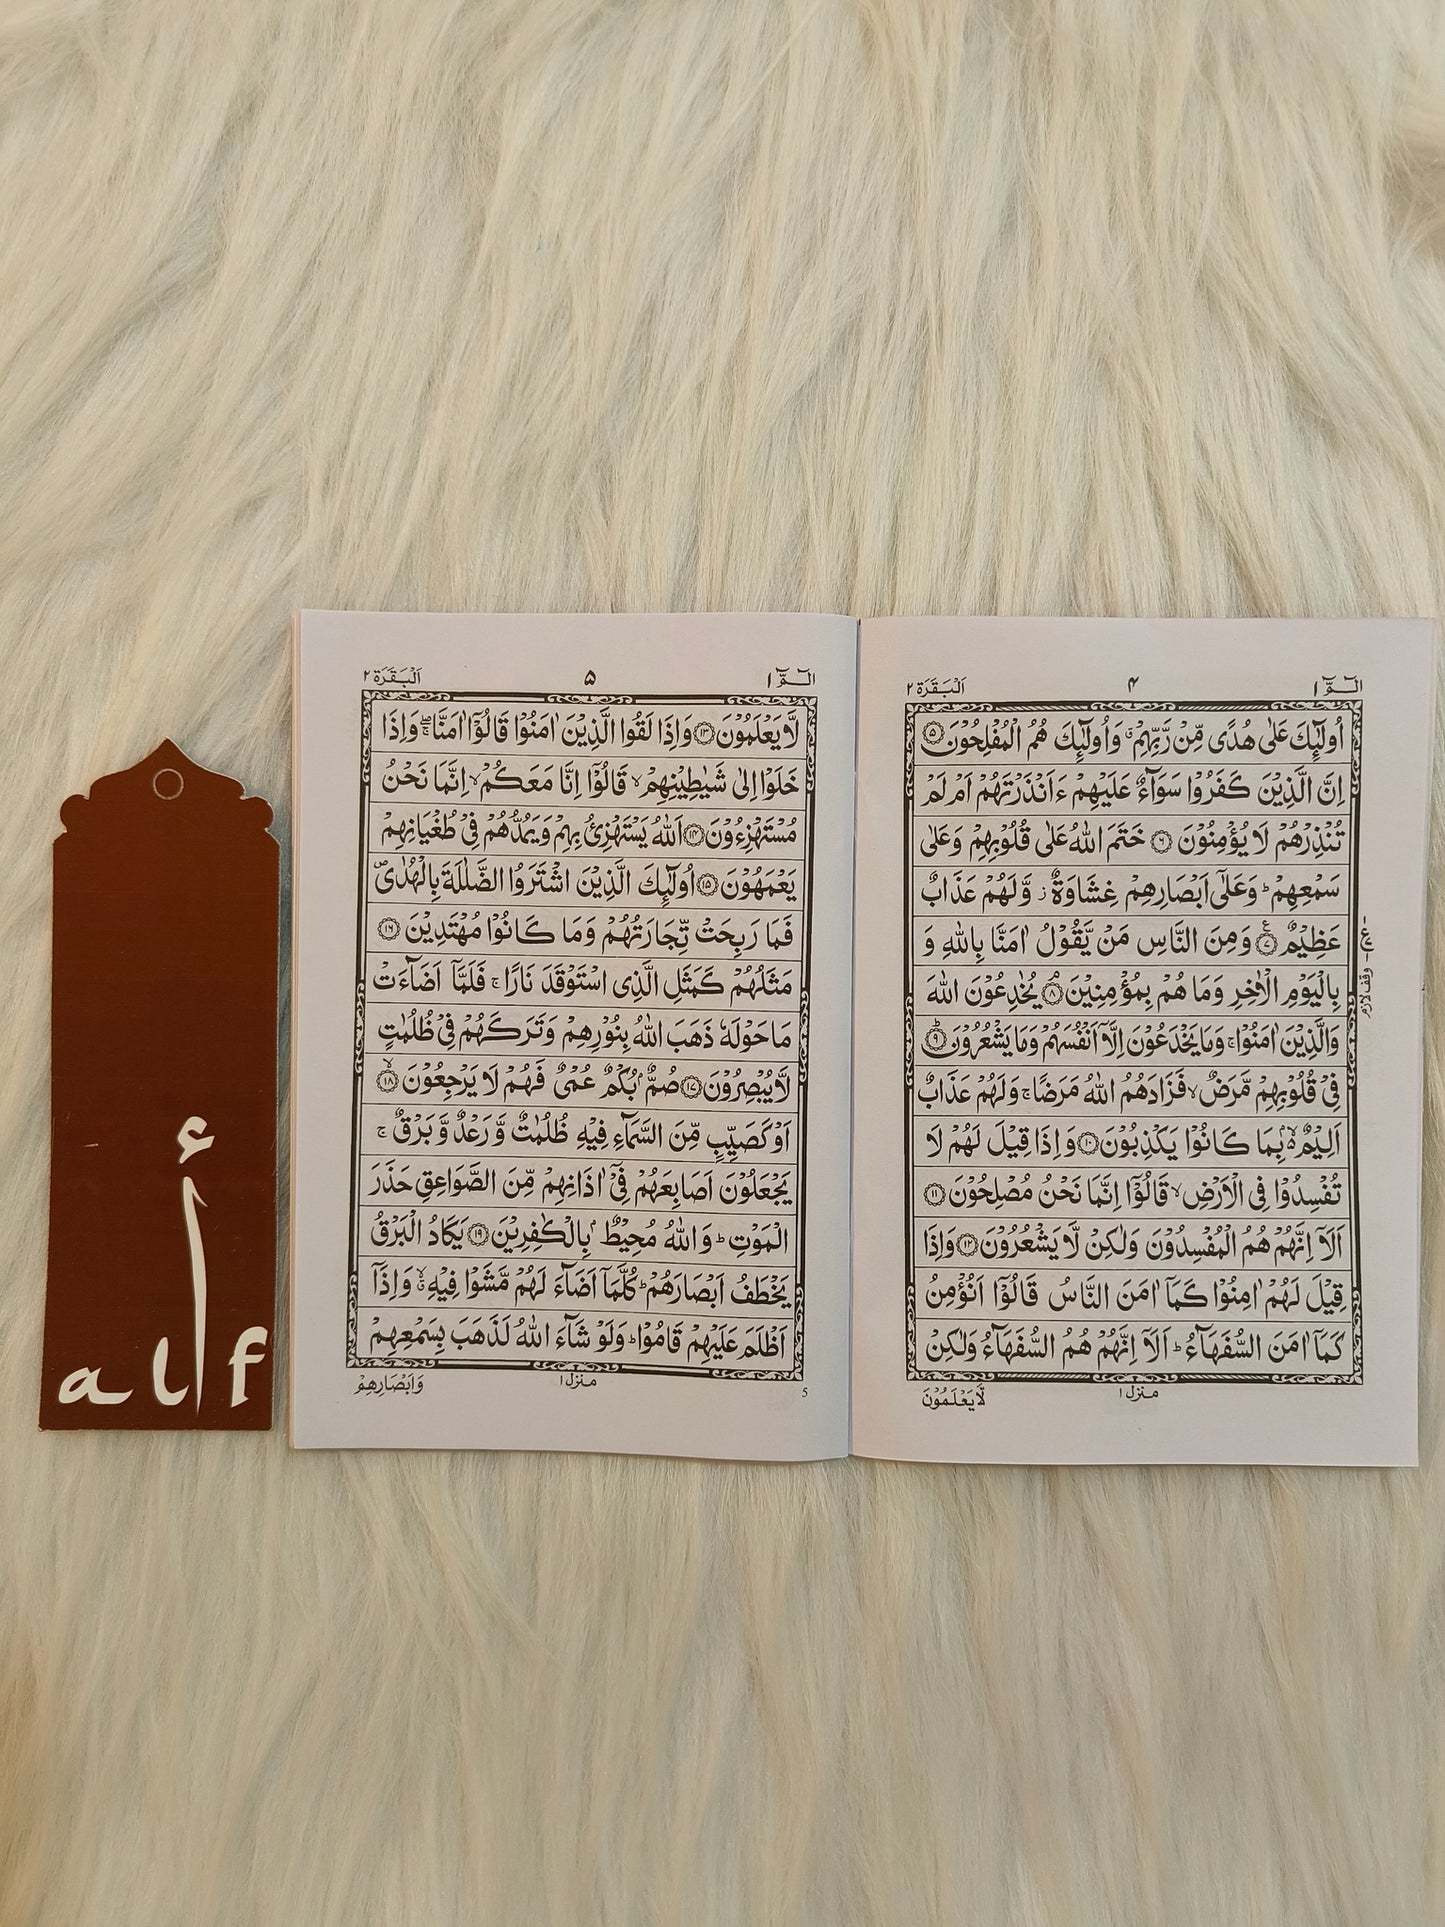 الٓمّٓ ١
۴
اَلْبَقَرَة ٢
اُولٰٓئِكَ عَلٰى هُدًى مِّنْ رَّبِّهِمْ ۗ وَاُولٰٓئِكَ هُمُ الْمُفْلِحُوْنَ ۝۵
اِنَّ الَّذِيْنَ كَفَرُوْا سَوَآءٌ عَلَيْهِمْ ءَاَنْذَرْتَهُمْ اَمْ لَمْ
تُنْذِرْهُمْ لَا يُؤْمِنُوْنَ ۝۶ خَتَمَ اللّٰهُ عَلٰى قُلُوْبِهِمْ وَعَلٰى
سَمْعِهِمْ ؕ وَعَلٰٓى اَبْصَارِهِمْ غِشَاوَةٌ ز وَّلَهُمْ عَذَابٌ
عَظِيْمٌ ۝۷ وَمِنَ النَّاسِ مَنْ يَّقُوْلُ اٰمَنَّا بِاللّٰهِ وَ
بِالْيَوْمِ الْاٰخِرِ وَمَا هُمْ بِمُؤْمِنِيْنَ ۝۸ يُخٰدِعُوْنَ اللّٰهَ
وَالَّذِيْنَ اٰمَنُوْا ۚ وَمَا يَخْدَعُوْنَ اِلَّآ اَنْفُسَهُمْ وَمَا يَشْعُرُوْنَ ۝۹
فِيْ قُلُوْبِهِمْ مَّرَضٌ ۙ فَزَادَهُمُ اللّٰهُ مَرَضًا ۚ وَلَهُمْ عَذَابٌ
اَلِيْمٌ ۢ ۙ بِمَا كَانُوْا يَكْذِبُوْنَ ۝۱۰ وَاِذَا قِيْلَ لَهُمْ لَا
تُفْسِدُوْا فِى الْاَرْضِ ۙ قَالُوْٓا اِنَّمَا نَحْنُ مُصْلِحُوْنَ ۝۱۱
اَلَآ اِنَّهُمْ هُمُ الْمُفْسِدُوْنَ وَلٰكِنْ لَّا يَشْعُرُوْنَ ۝۱۲ وَاِذَا
قِيْلَ لَهُمْ اٰمِنُوْا كَمَآ اٰمَنَ النَّاسُ قَالُوْٓا اَنُؤْمِنُ
كَمَآ اٰمَنَ السُّفَهَآءُ ؕ اَلَآ اِنَّهُمْ هُمُ السُّفَهَآءُ وَلٰكِنْ
منزل ١
لَّا يَعْلَمُوْنَ
وقف لازم
الٓمّٓ ١
۵
اَلْبَقَرَة ٢
لَّا يَعْلَمُوْنَ ۝۱۳ وَاِذَا لَقُوا الَّذِيْنَ اٰمَنُوْا قَالُوْٓا اٰمَنَّا ۚۖ وَاِذَا
خَلَوْا اِلٰى شَيٰطِيْنِهِمْ ۙ قَالُوْٓا اِنَّا مَعَكُمْ ۙ اِنَّمَا نَحْنُ
مُسْتَهْزِءُوْنَ ۝۱۴ اَللّٰهُ يَسْتَهْزِئُ بِهِمْ وَيَمُدُّهُمْ فِيْ طُغْيَانِهِمْ
يَعْمَهُوْنَ ۝۱۵ اُولٰٓئِكَ الَّذِيْنَ اشْتَرَوُا الضَّلٰلَةَ بِالْهُدٰى ۪
فَمَا رَبِحَتْ تِّجَارَتُهُمْ وَمَا كَانُوْا مُهْتَدِيْنَ ۝۱۶
مَثَلُهُمْ كَمَثَلِ الَّذِى اسْتَوْقَدَ نَارًا ۚ فَلَمَّآ اَضَآءَتْ
مَا حَوْلَهٗ ذَهَبَ اللّٰهُ بِنُوْرِهِمْ وَتَرَكَهُمْ فِيْ ظُلُمٰتٍ
لَّا يُبْصِرُوْنَ ۝۱۷ صُمٌّ ۢ بُكْمٌ عُمْيٌ فَهُمْ لَا يَرْجِعُوْنَ ۙ۝۱۸
اَوْ كَصَيِّبٍ مِّنَ السَّمَآءِ فِيْهِ ظُلُمٰتٌ وَّرَعْدٌ وَّبَرْقٌ ۚ
يَجْعَلُوْنَ اَصَابِعَهُمْ فِيْٓ اٰذَانِهِمْ مِّنَ الصَّوَاعِقِ حَذَرَ
الْمَوْتِ ؕ وَاللّٰهُ مُحِيْطٌ ۢ بِالْكٰفِرِيْنَ ۝۱۹ يَكَادُ الْبَرْقُ
يَخْطَفُ اَبْصَارَهُمْ ؕ كُلَّمَآ اَضَآءَ لَهُمْ مَّشَوْا فِيْهِ ۙۗ وَاِذَآ
اَظْلَمَ عَلَيْهِمْ قَامُوْا ؕ وَلَوْ شَآءَ اللّٰهُ لَذَهَبَ بِسَمْعِهِمْ
5
منزل ١
وَاَبْصَارِهِمْ
أ
alf